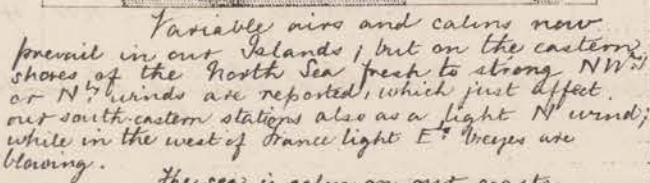 Variable airs and calms now
prevail in our Islands; but on the eastern
shores of the North Sea fresh to strong NWly
or Nly winds are reported, which just affect
our south-eastern stations also as a light N wind;
while in the west of France light Ely breezes are
blowing.
The sea is calm on our coasts